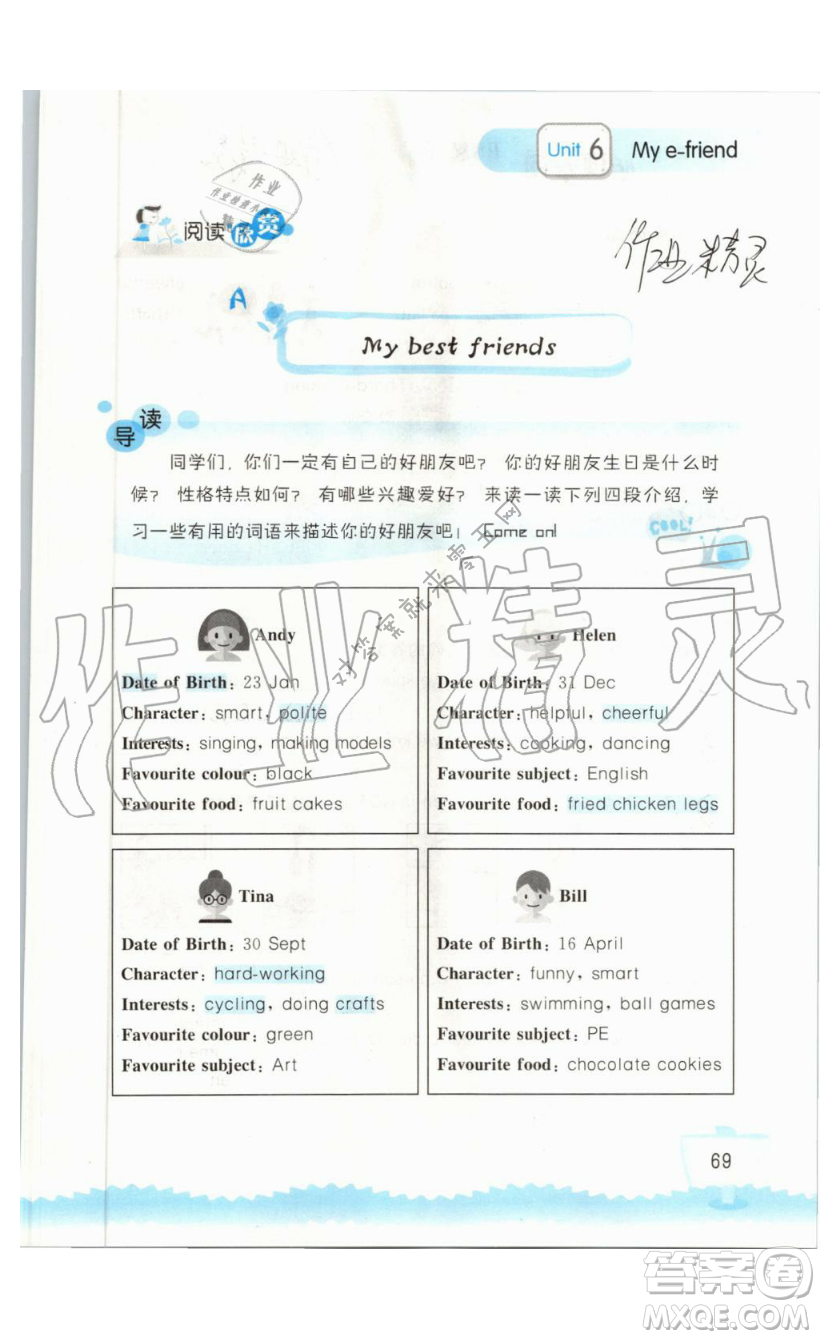 Unit 6 My e-friend
阅读欣赏
作业精灵
A
My best friends
导读
同学们，你们一定有自己的好朋友吧？ 你的好朋友生日是什么时
候？ 性格特点如何？ 有哪些兴趣爱好？ 来读一读下列四段介绍，学
习一些有用的词语来描述你的好朋友吧！ Come on!
COOL!
对答案就来零五网
作业精灵
Andy
Date of Birth: 23 Jan
Character: smart, polite
Interests: singing, making models
Favourite colour: black
Favourite food: fruit cakes
Helen
Date of Birth: 31 Dec
Character: helpful, cheerful
Interests: cooking, dancing
Favourite subject: English
Favourite food: fried chicken legs
Tina
Date of Birth: 30 Sept
Character: hard-working
Interests: cycling, doing crafts
Favourite colour: green
Favourite subject: Art
Bill
Date of Birth: 16 April
Character: funny, smart
Interests: swimming, ball games
Favourite subject: PE
Favourite food: chocolate cookies
69
答案卷
MXQE.COM